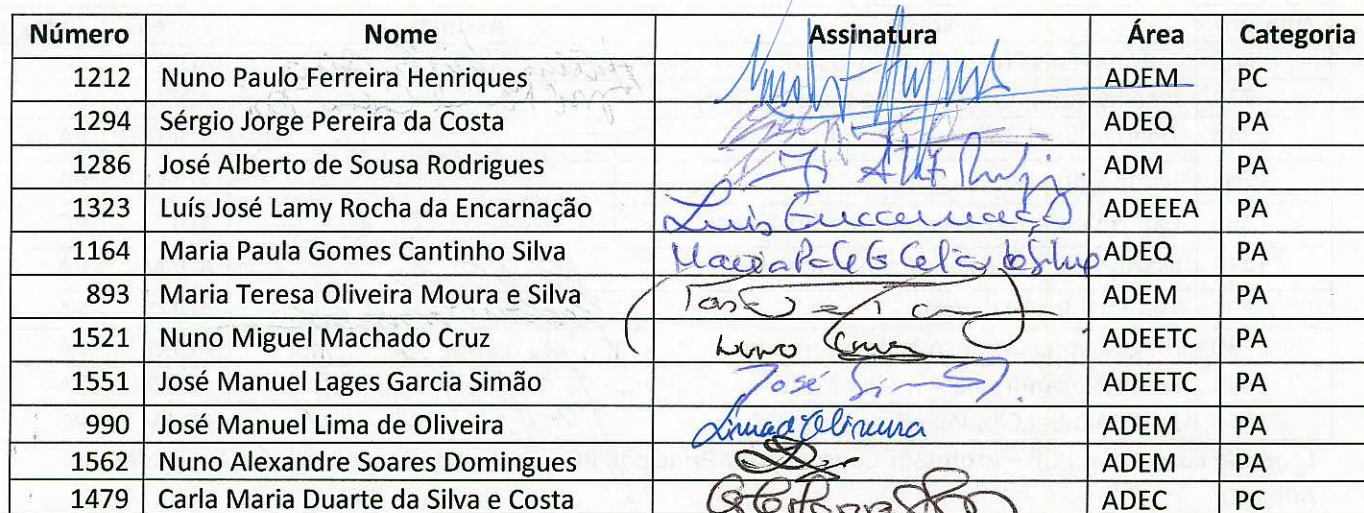 Número Nome Assinatura Área Categoria
1212 Nuno Paulo Ferreira Henriques ADEM PC
1294 Sérgio Jorge Pereira da Costa ADEQ PA
1286 José Alberto de Sousa Rodrigues ADM PA
1323 Luís José Lamy Rocha da Encarnação Luís Encarnação ADEEEA PA
1164 Maria Paula Gomes Cantinho Silva ADEQ PA
893 Maria Teresa Oliveira Moura e Silva ADEM PA
1521 Nuno Miguel Machado Cruz Nuno Cruz ADEETC PA
1551 José Manuel Lages Garcia Simão José Simão ADEETC PA
990 José Manuel Lima de Oliveira Lima d'Oliveira ADEM PA
1562 Nuno Alexandre Soares Domingues ADEM PA
1479 Carla Maria Duarte da Silva e Costa ADEC PC